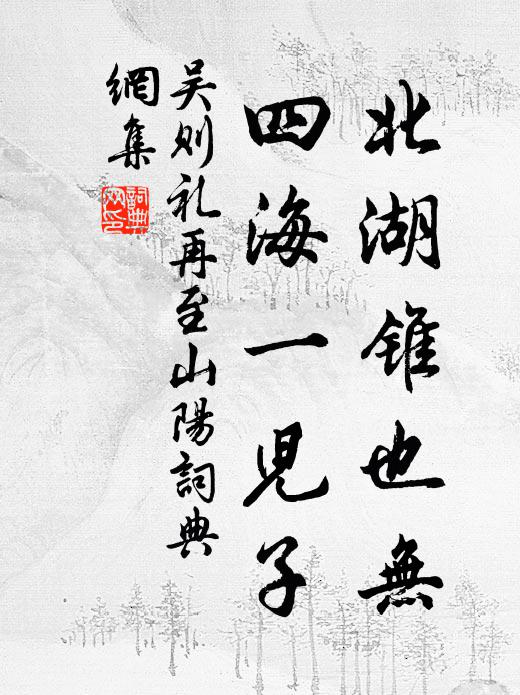 北湖錐也無
四海一兒子
吴则礼再至山陽詞典
網集
詞典
网印